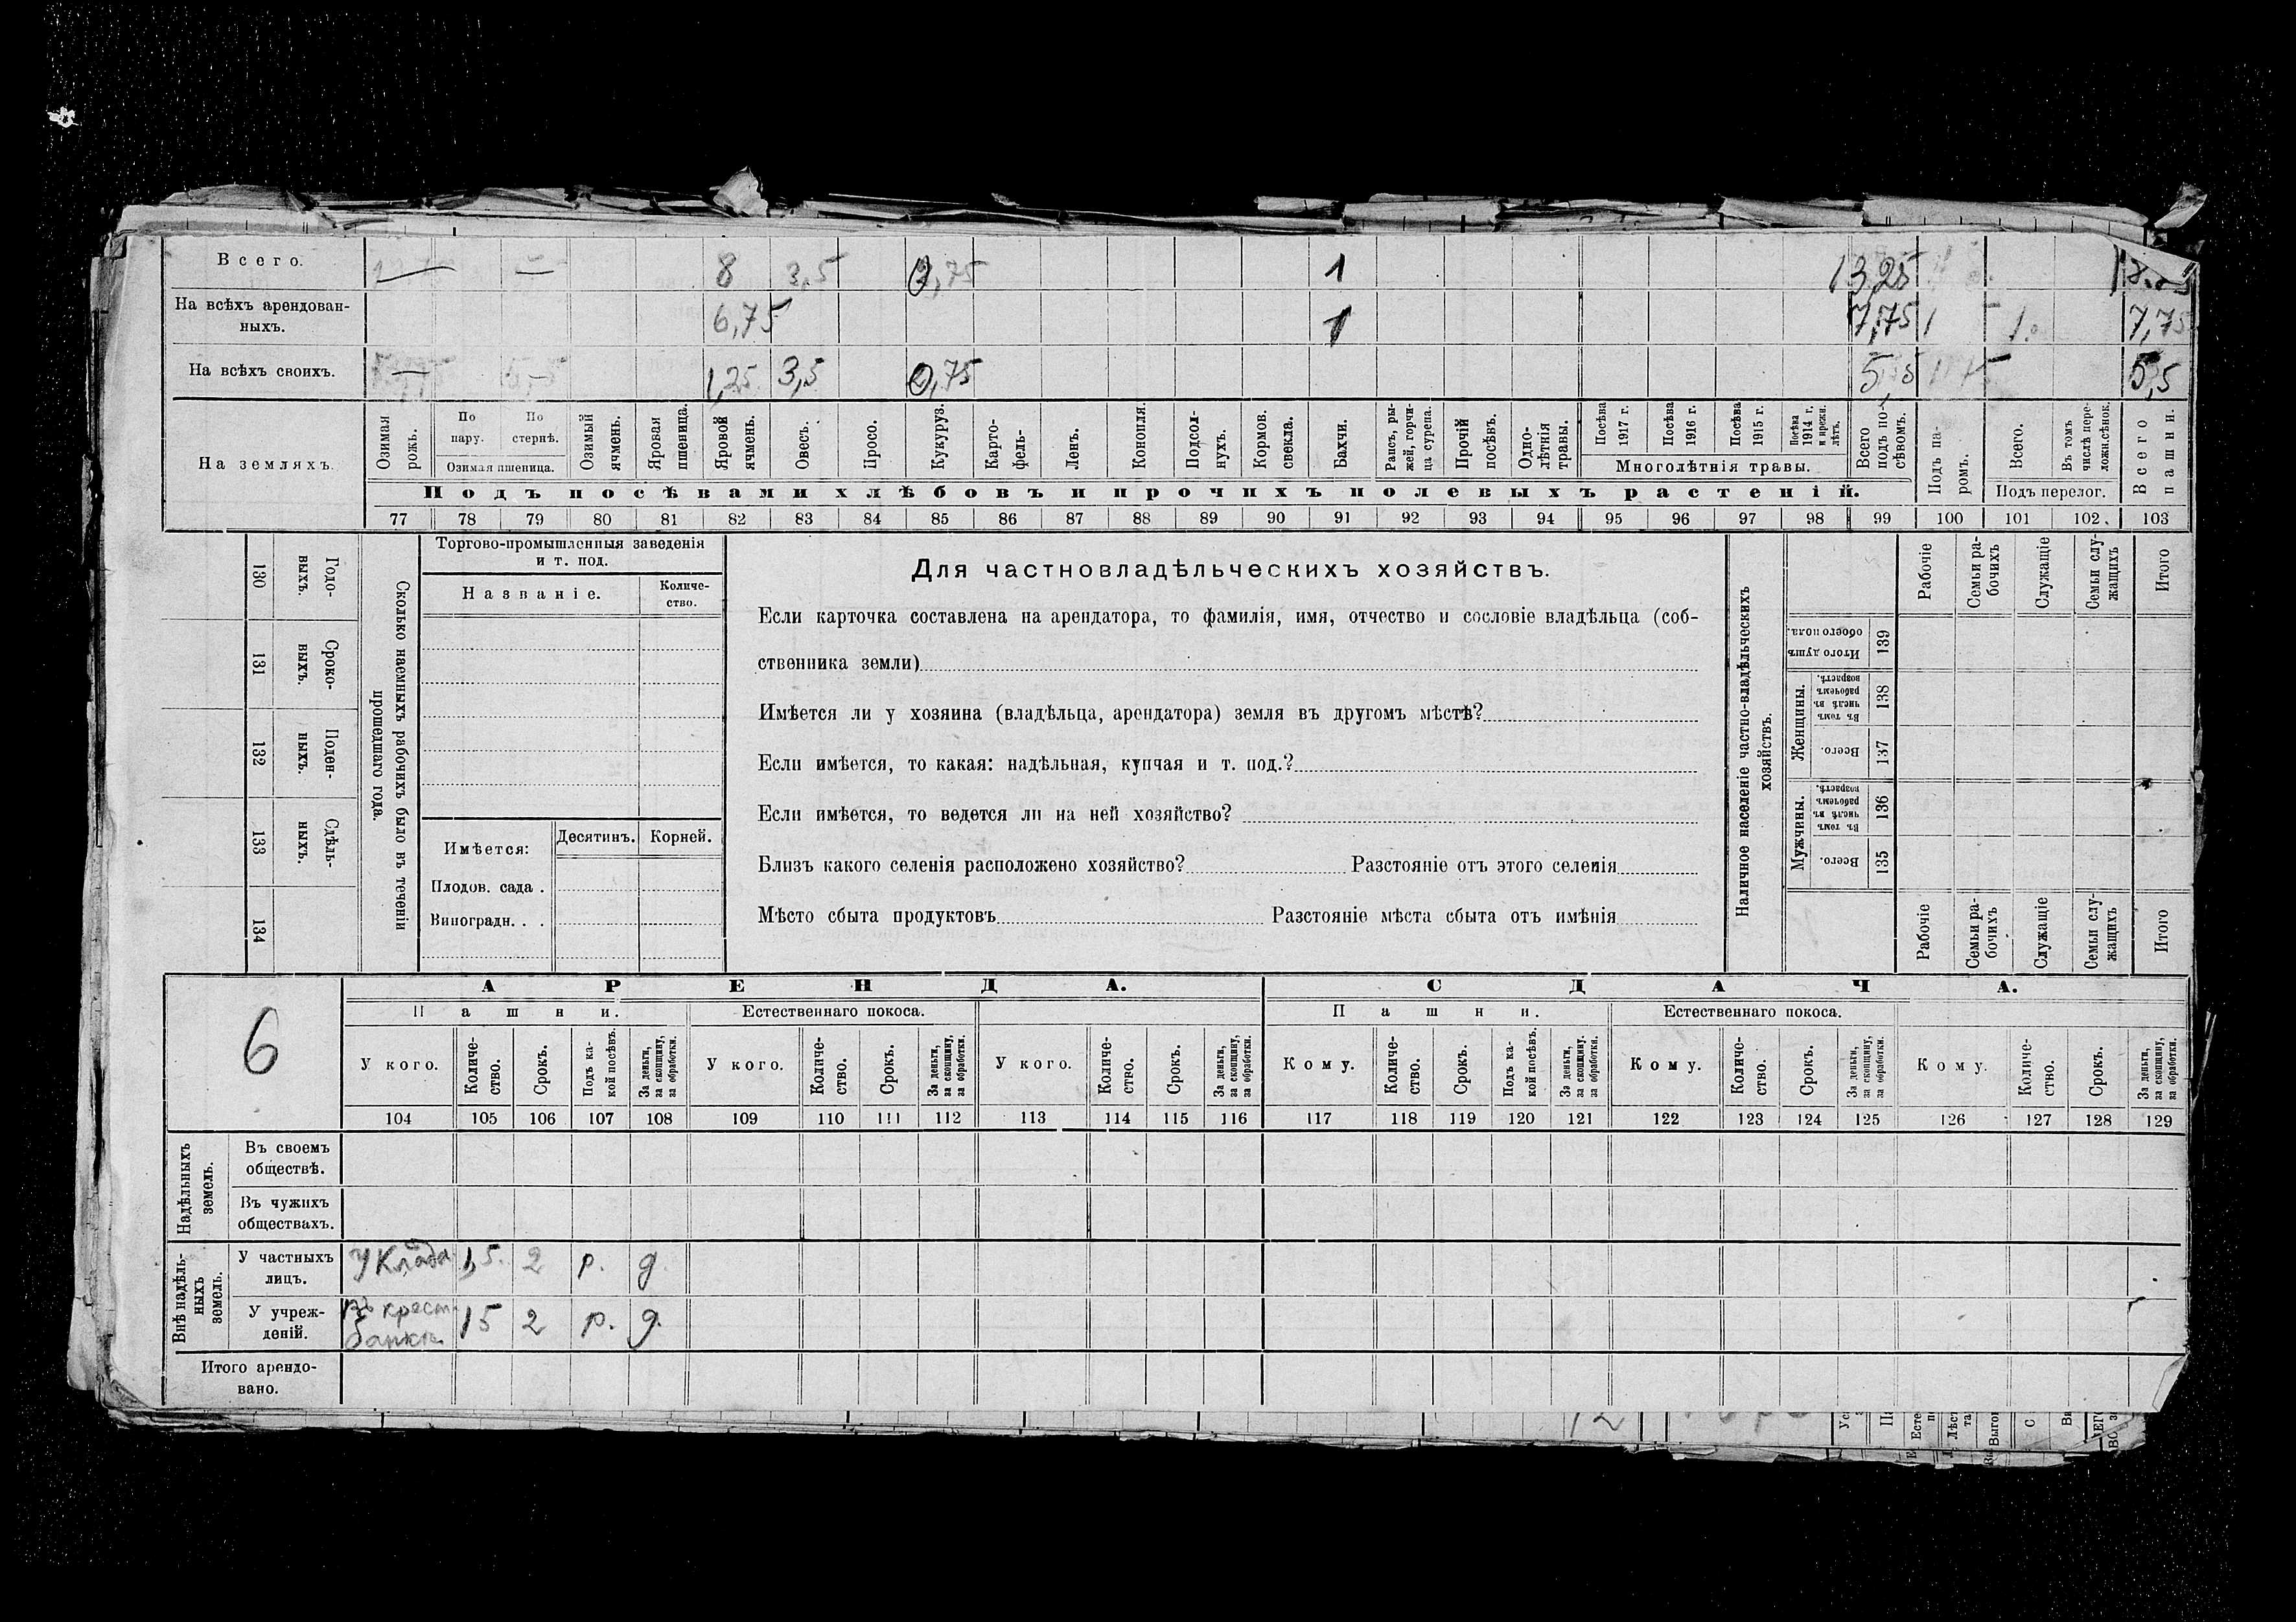 Всего. 8 3,5 0,75 1 13,25
На всѣхъ арендован-
ныхъ. 6,75 1 7,75 7,75
На всѣхъ своихъ. 1,25 3,5 0,75 5,5
На земляхъ.
Озимая
рожь.
По
пару.
По
стернѣ.
Озимая пшеница.
Озимый
ячмень.
Яровая
пшеница.
Яровой
ячмень.
Овесъ.
Просо.
Кукуруз.
Карто-
фель-
Ленъ.
Конопля.
Подсол-
нухъ.
Кормов.
свекла.
Бахчи.
Рапсъ, ры-
жей, горчи-
ца сурепа.
Прочій
посѣвъ.
Одно-
лѣтнія
травы.
Посѣва
1917 г.
Посѣва
1916 г.
Посѣва
1915 г.
Посѣва
1914 г.
и прежн.
лѣтъ.
Многолѣтнія травы.
Всего
подъ по-
сѣвомъ.
Подъ па-
ромъ.
Всего.
Въ томъ
числѣ пере-
ложн.сѣнок.
Подъ перелог.
Всего
пашни.
Подъ посѣвами хлѣбовъ и прочихъ полевыхъ растеній.
77 78 79 80 81 82 83 84 85 86 87 88 89 90 91 92 93 94 95 96 97 98 99 100 101 102. 103
130 Годо-
ныхъ.
131 Сроко-
ныхъ.
132 Поден-
ныхъ.
133 Сдѣль-
ныхъ.
134
Сколько наемныхъ рабочихъ было въ теченіи
прошедшаго года.
Торгово-промышленныя заведенія
и т. под.
Названіе.
Количе-
ство.
Имѣется:
Десятинъ. Корней.
Плодов. сада .
Виноградн. . .
Для частновладѣльческихъ хозяйствъ.
Если карточка составлена на арендатора, то фамилія, имя, отчество и сословіе владѣльца (соб-
ственника земли)
Имѣется ли у хозяина (владѣльца, арендатора) земля въ другомъ мѣстѣ?
Если имѣется, то какая: надѣльная, купчая и т. под.?
Если имѣется, то ведется ли на ней хозяйство?
Близъ какого селенія расположено хозяйство? Разстояніе отъ этого селенія
Мѣсто сбыта продуктовъ Разстояніе мѣста сбыта отъ имѣнія
Наличное населеніе частно-владѣльческихъ
хозяйствъ.
Рабочіе
Семьи ра-
бочихъ
Служащіе
Семьи слу-
жащихъ
Итого
Итого душъ
обоего пола.
139
Женщины.
Въ томъ
числѣ въ
рабочемъ
возрастѣ.
138
Всего.
137
Мужчины.
Въ томъ
числѣ въ
рабочемъ
возрастѣ.
136
Всего.
135
Рабочіе
Семьи ра-
бочихъ
Служащіе
Семьи слу-
жащихъ
Итого
6
АРЕНДА. СДАЧА.
Пашни. Естественнаго покоса. Пашни. Естественнаго покоса.
У кого.
Количе-
ство.
Срокъ.
Подъ ка-
кой посѣвъ.
За деньги,
за скопщину,
за обработки.
У кого.
Количе-
ство.
Срокъ.
За деньги,
за скопщину,
за обработки.
У кого.
Количе-
ство.
Срокъ.
За деньги,
за скопщину,
за обработки.
Кому.
Количе-
ство.
Срокъ.
Подъ ка-
кой посѣвъ.
За деньги,
за скопщину,
за обработки.
Кому.
Количе-
ство.
Срокъ.
За деньги,
за скопщину,
за обработки.
Кому.
Количе-
ство.
Срокъ.
За деньги,
за скопщину,
за обработки.
104 105 106 107 108 109 110 111 112 113 114 115 116 117 118 119 120 121 122 123 124 125 126 127 128 129
Надѣльныхъ
земель.
Въ своемъ
обществѣ.
Въ чужихъ
обществахъ.
Внѣ надѣль-
ныхъ
земель.
У частныхъ
лицъ.
У 1,5 2 р. д.
У учреж-
деній.
въ крест.
банкѣ 15 2 р. д.
Итого арендо-
вано.
12